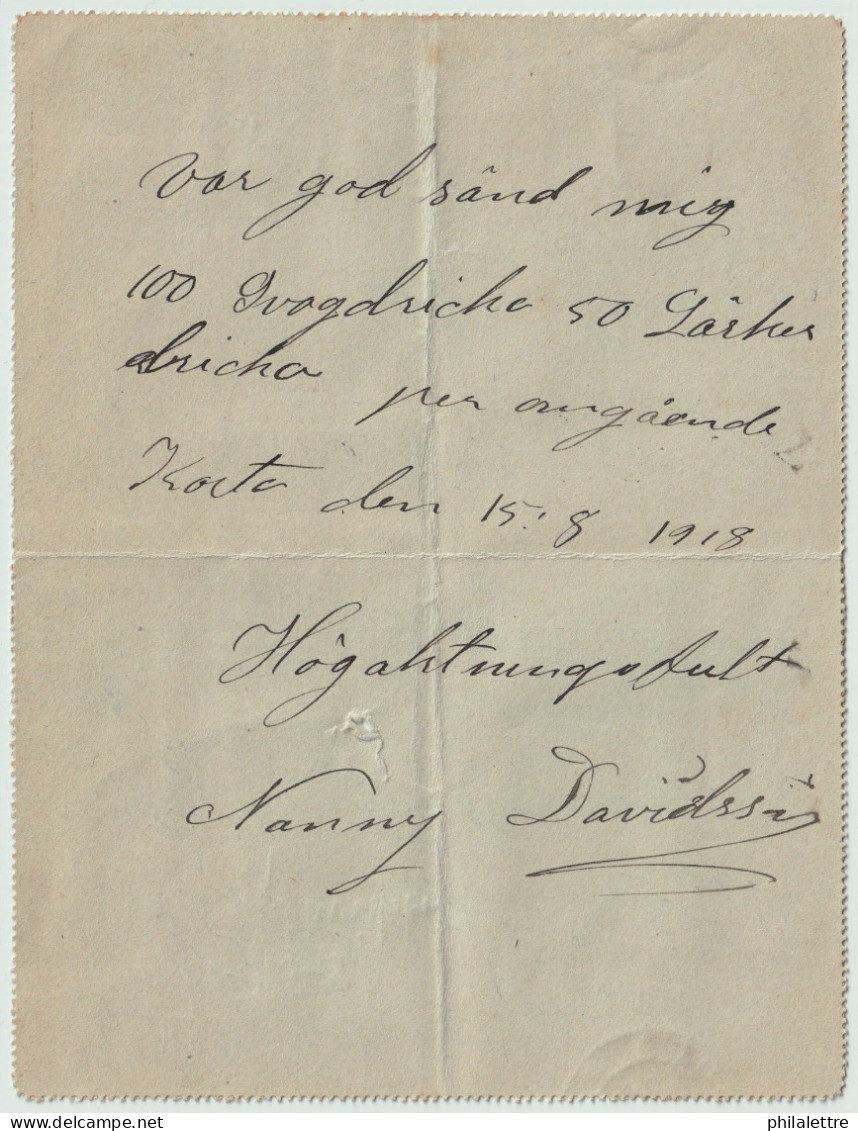 Var god sänd mig
100 Svagdricka 50 Läsker
dricka per omgående
Kosta den 15: 8 1918
Högaktningsfult
Nanny Davidsson
philalettre